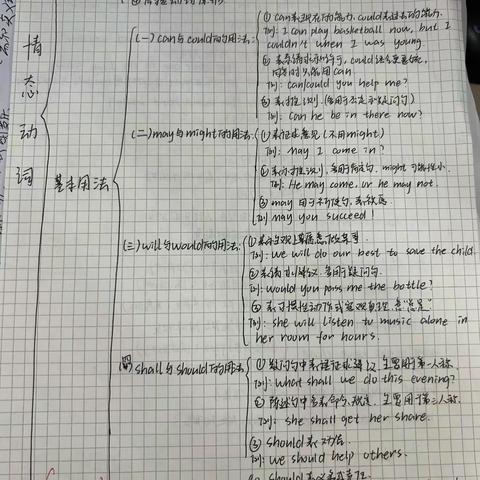 情态动词
基本用法
(一) can与could的用法:
① can表现在的能力, could表过去的能力.
例: I can play basketball now, but I
couldn't when I was young.
② 表请求或许可, could语气更委婉,
回答时只能用can
例: can/could you help me?
③ 表推测 (常用于否定和疑问句)
例: can he be in there now?
(二) may与might的用法:
① 表征求意见 (不用might)
例: may I come in?
② 表示推测, 多用于肯定句, might 可能性小.
例: He may come, or he may not.
③ may 用于祈使句, 表祝愿
例 may you succeed!
(三) will与would的用法:
① 表示主观上愿意做某事.
例: we will do our best to save the child.
② 表请求建议, 多用于疑问句.
例: would you pass me the bottle?
③ 表习惯性动作或客观真理 意"总是"
例: she will listen to music alone in
her room for hours.
shall与should的用法
① 疑问句中表征求建议, 主要用于第一人称
例: what shall we do this evening?
② 陈述句中多表命令, 主要用于第三人称.
例: she shall get her share.
③ should表劝告.
例: we should help others.
should表